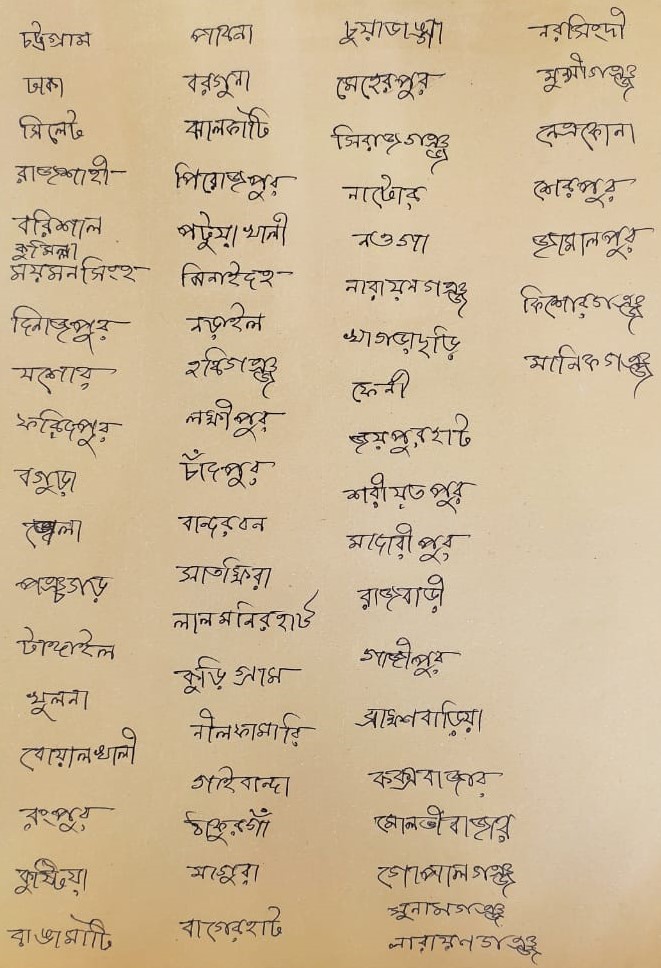 চট্টগ্রাম
ঢাকা
সিলেট
রাজশাহী
বরিশাল
কুমিল্লা
ময়মনসিংহ
দিনাজপুর
যশোর
ফরিদপুর
বগুড়া
পঞ্চগড়
টাঙ্গাইল
খুলনা
নোয়াখালী
রংপুর
কুষ্টিয়া
রাঙামাটি
পাবনা
বরগুনা
ঝালকাটি
পিরোজপুর
পটুয়াখালী
ঝিনাইদহ
নড়াইল
হবিগঞ্জ
লক্ষীপুর
চাঁদপুর
বান্দরবন
সাতক্ষিরা
লালমনিরহাট
কুড়িগ্রাম
নীলফামারি
গাইবান্দা
ঠাকুরগাঁ
মাগুরা
বাগেরহাট
চুয়াডাঙ্গা
মেহেরপুর
সিরাজগঞ্জ
নাটোর
নওগা
নারায়নগঞ্জ
খাগড়াছড়ি
ফেনী
জয়পুরহাট
শরীয়তপুর
মাদারীপুর
রাজবাড়ী
গাজীপুর
ব্রাহ্মণবাড়িয়া
কক্সবাজার
মোলভীবাজার
গোপালগঞ্জ
সুনামগঞ্জ
নারায়নগঞ্জ
নরসিংদী
মুন্সীগঞ্জ
নেত্রকোনা
শেরপুর
জামালপুর
কিশোরগঞ্জ
মানিকগঞ্জ